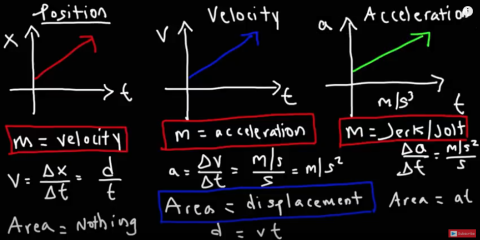 Position
x
t
m = velocity
V = Δx/Δt = d/t
Area = Nothing
Velocity
v
t
m = acceleration
a = Δv/Δt = m/s/s = m/s²
Area = displacement
d = vt
Acceleration
a
m/s³
t
m = Jerk/Jolt
Δa/Δt = m/s²/s
Area = at
Subscribe